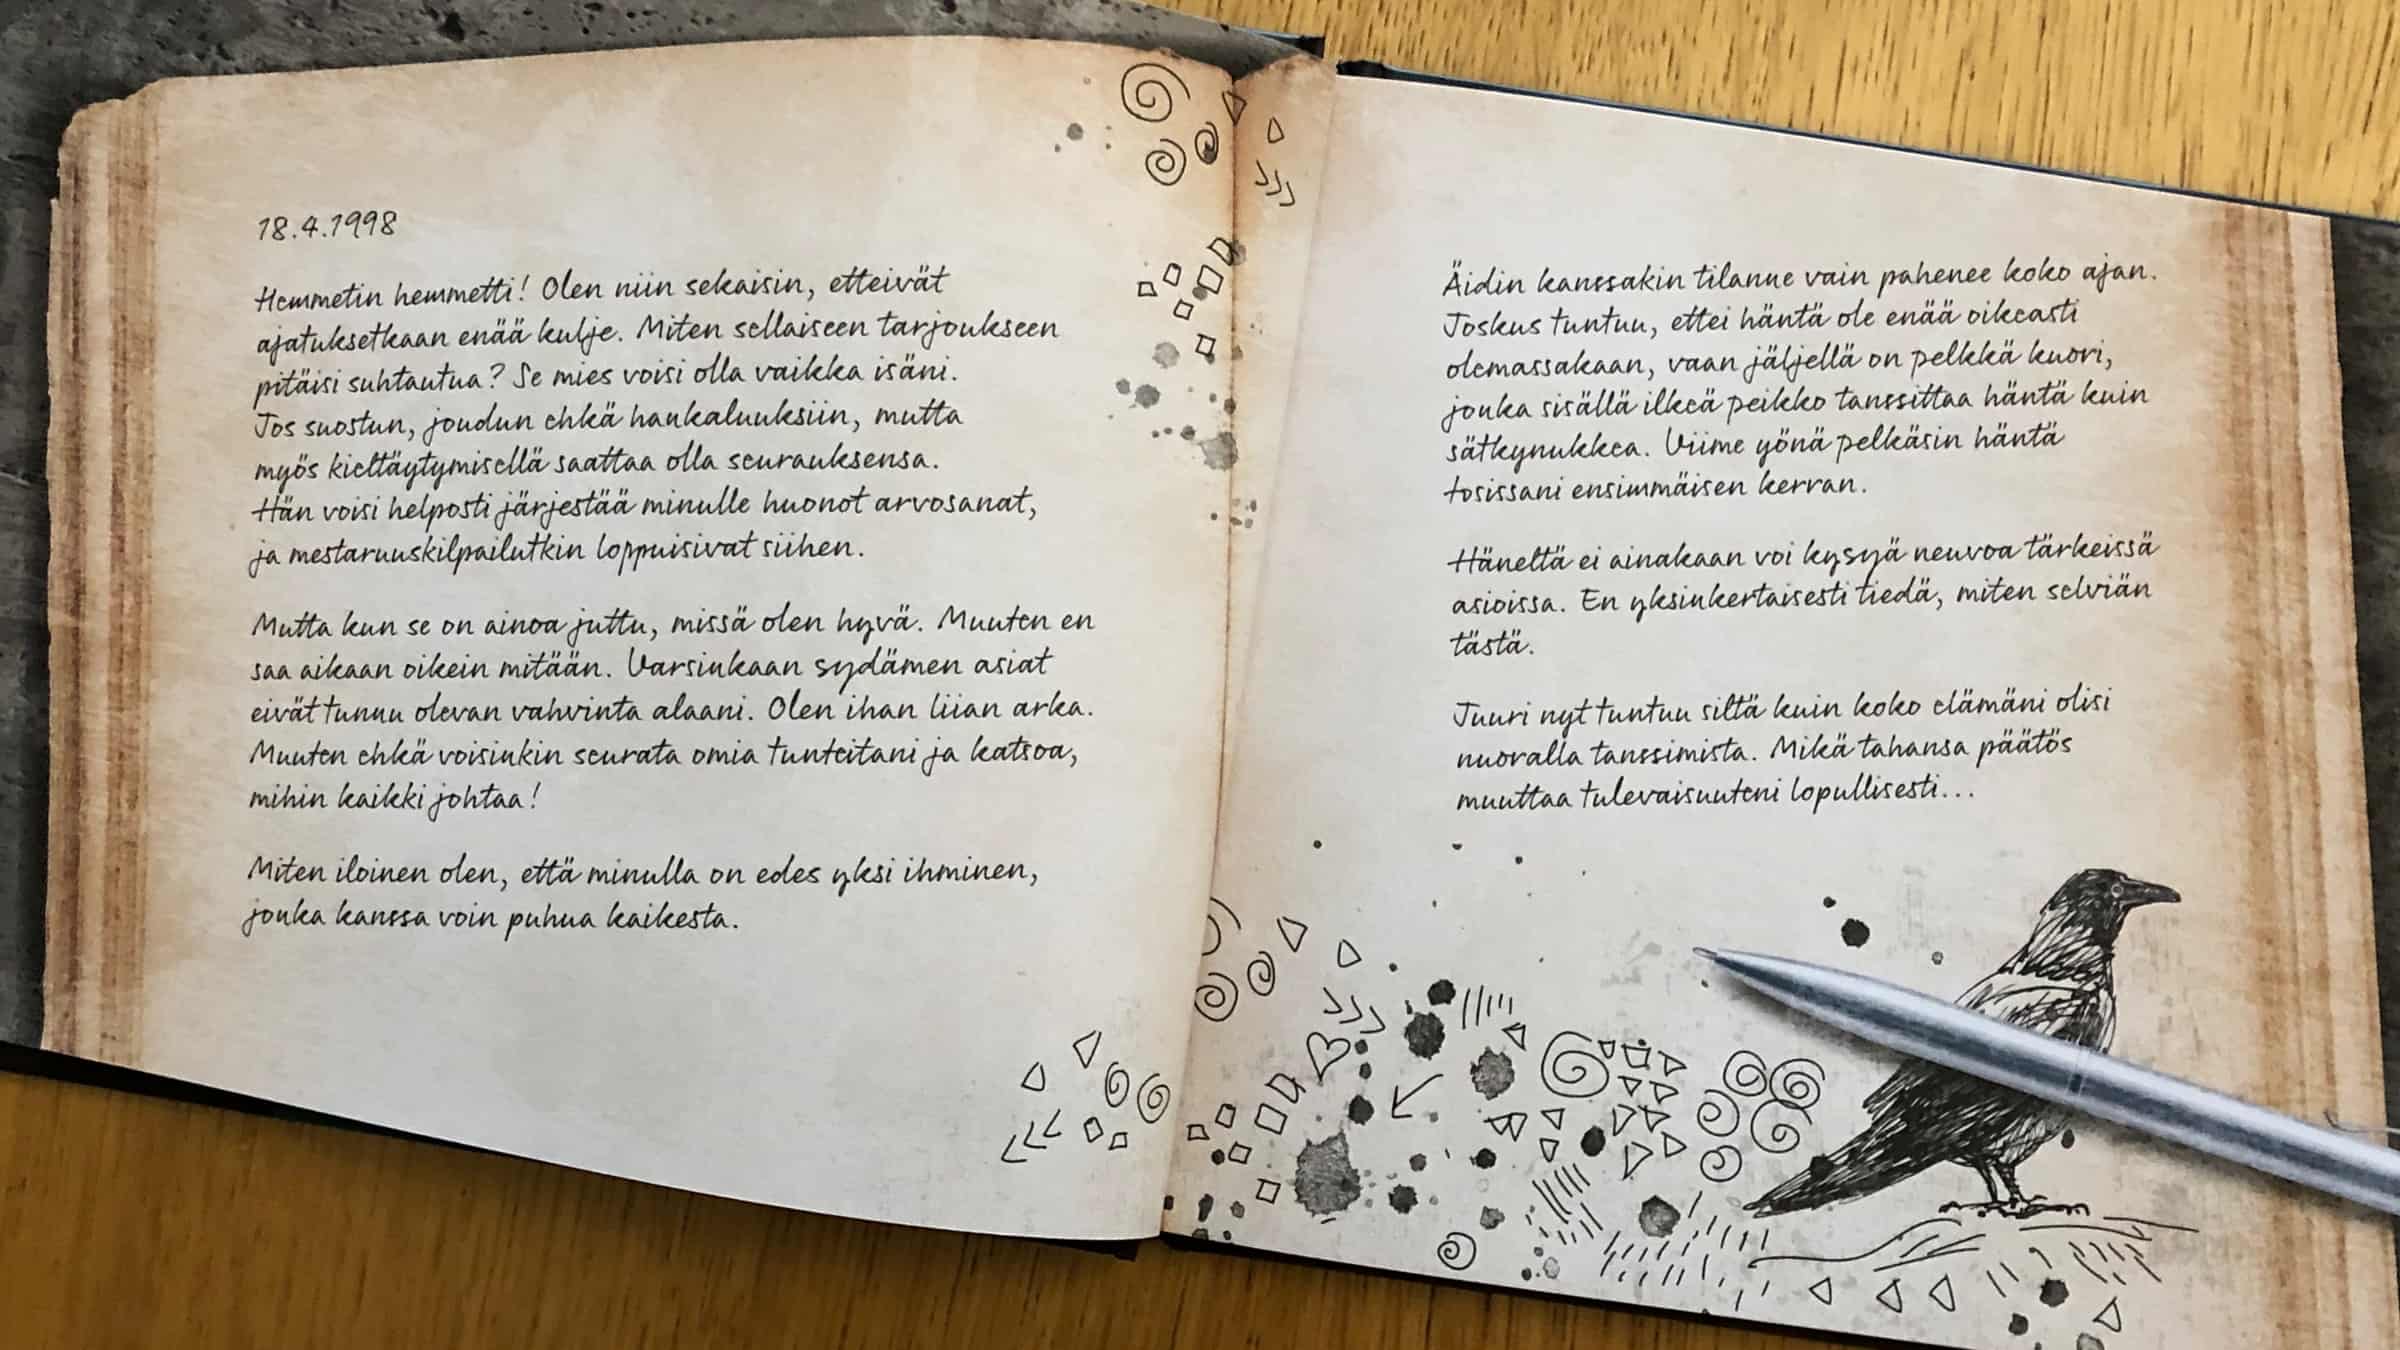 18.4.1998
Hemmetin hemmetti! Olen niin sekaisin, etteivät
ajatuksetkaan enää kulje. Miten sellaiseen tarjoukseen
pitäisi suhtautua? Se mies voisi olla vaikka isäni.
Jos suostun, joudun ehkä hankaluuksiin, mutta
myös kieltäytymisellä saattaa olla seurauksensa.
Hän voisi helposti järjestää minulle huonot arvosanat,
ja mestaruuskilpailutkin loppuisivat siihen.
Mutta kun se on ainoa juttu, missä olen hyvä. Muuten en
saa aikaan oikein mitään. Varsinkaan sydämen asiat
eivät tunnu olevan vahvinta alaani. Olen ihan liian arka.
Muuten ehkä voisinkin seurata omia tunteitani ja katsoa,
mihin kaikki johtaa!
Miten iloinen olen, että minulla on edes yksi ihminen,
jonka kanssa voin puhua kaikesta.
Äidin kanssakin tilanne vain pahenee koko ajan.
Joskus tuntuu, ettei häntä ole enää oikeasti
olemassakaan, vaan jäljellä on pelkkä kuori,
jonka sisällä ilkeä peikko tanssittaa häntä kuin
sätkynukkea. Viime yönä pelkäsin häntä
tosissani ensimmäisen kerran.
Häneltä ei ainakaan voi kysyä neuvoa tärkeissä
asioissa. En yksinkertaisesti tiedä, miten selviän
tästä.
Juuri nyt tuntuu siltä kuin koko elämäni olisi
nuoralla tanssimista. Mikä tahansa päätös
muuttaa tulevaisuuteni lopullisesti...